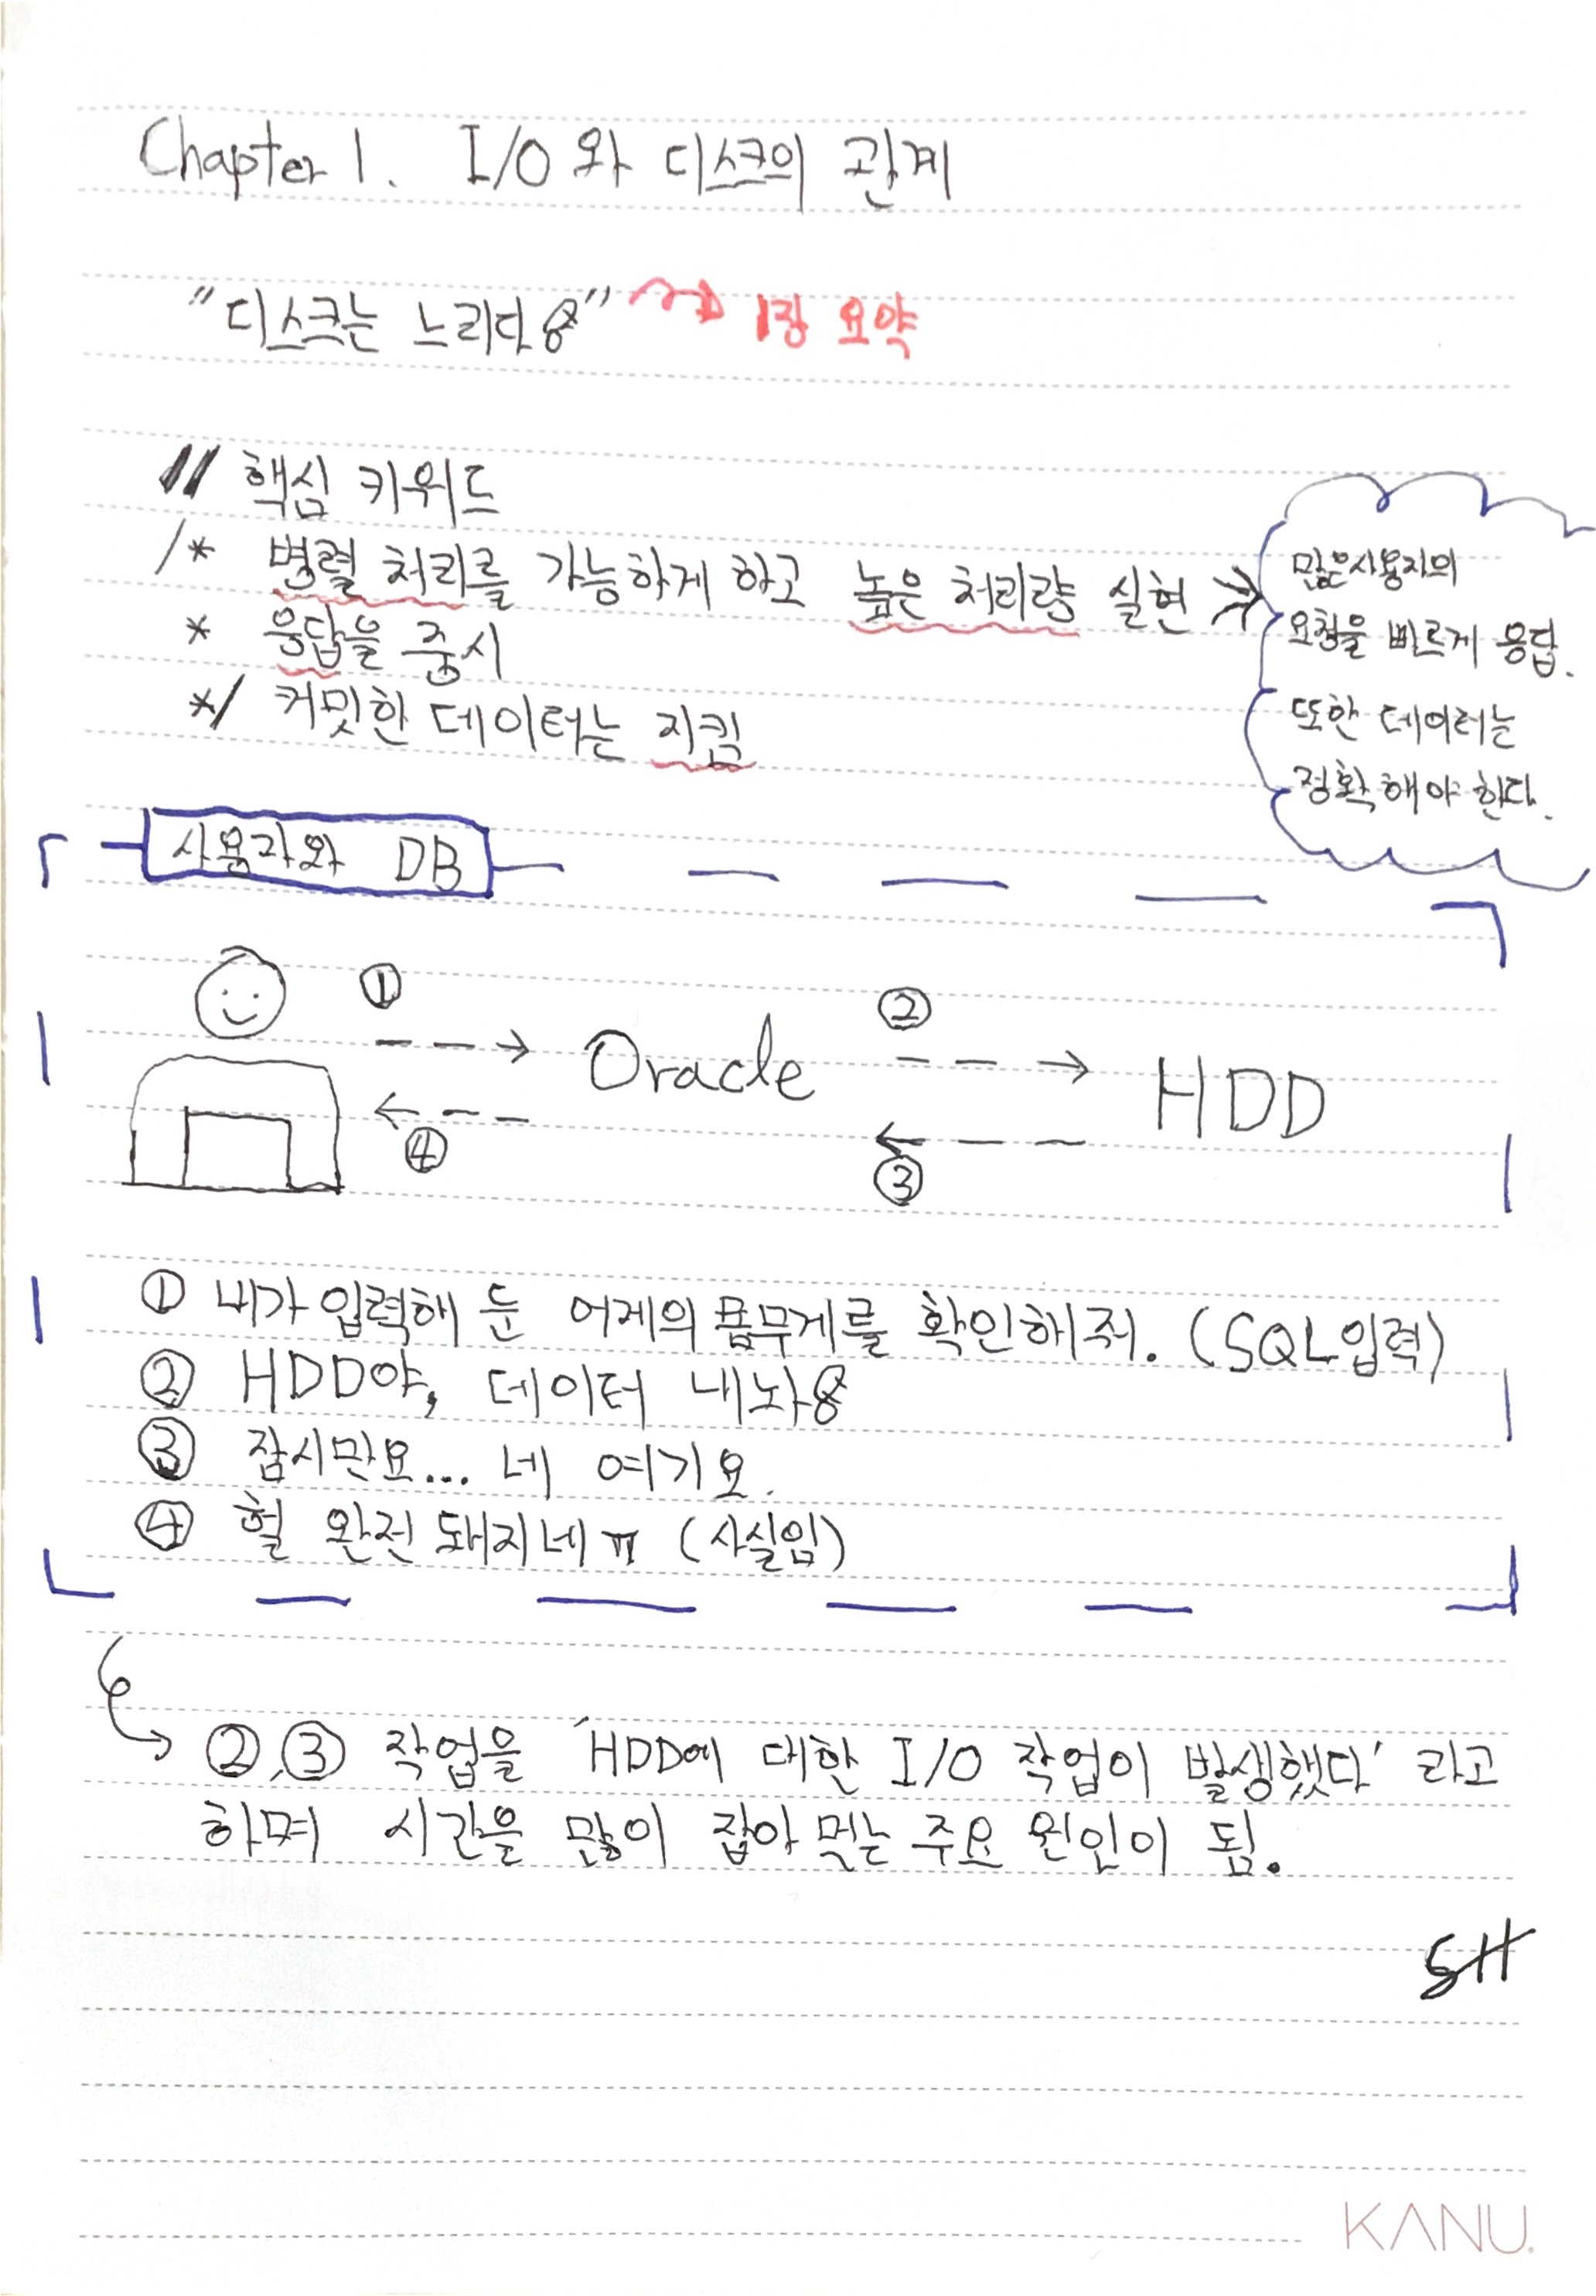 Chapter 1. I/O와 디스크의 관계
"디스크는 느리다용" 1장 요약
// 핵심 키워드
/* 병렬 처리를 가능하게 하고 높은 처리량 실현
* 응답을 중시
*/ 커밋한 데이터는 지킴
많은사용자의
요청을 빠르게 응답.
또한 데이터는
정확해야 한다.
사용자와 DB
① ②
Oracle HDD
④ ③
① 내가 입력해 둔 어제의 몸무게를 확인해줘. (SQL입력)
② HDD야, 데이터 내놔용
③ 잠시만요... 네 여기요.
④ 헐 완전 돼지네 ㅠ (사실임)
②,③ 작업을 'HDD에 대한 I/O 작업이 발생했다' 라고
하며 시간을 많이 잡아 먹는 주요 원인이 됨.
SH
KANU.